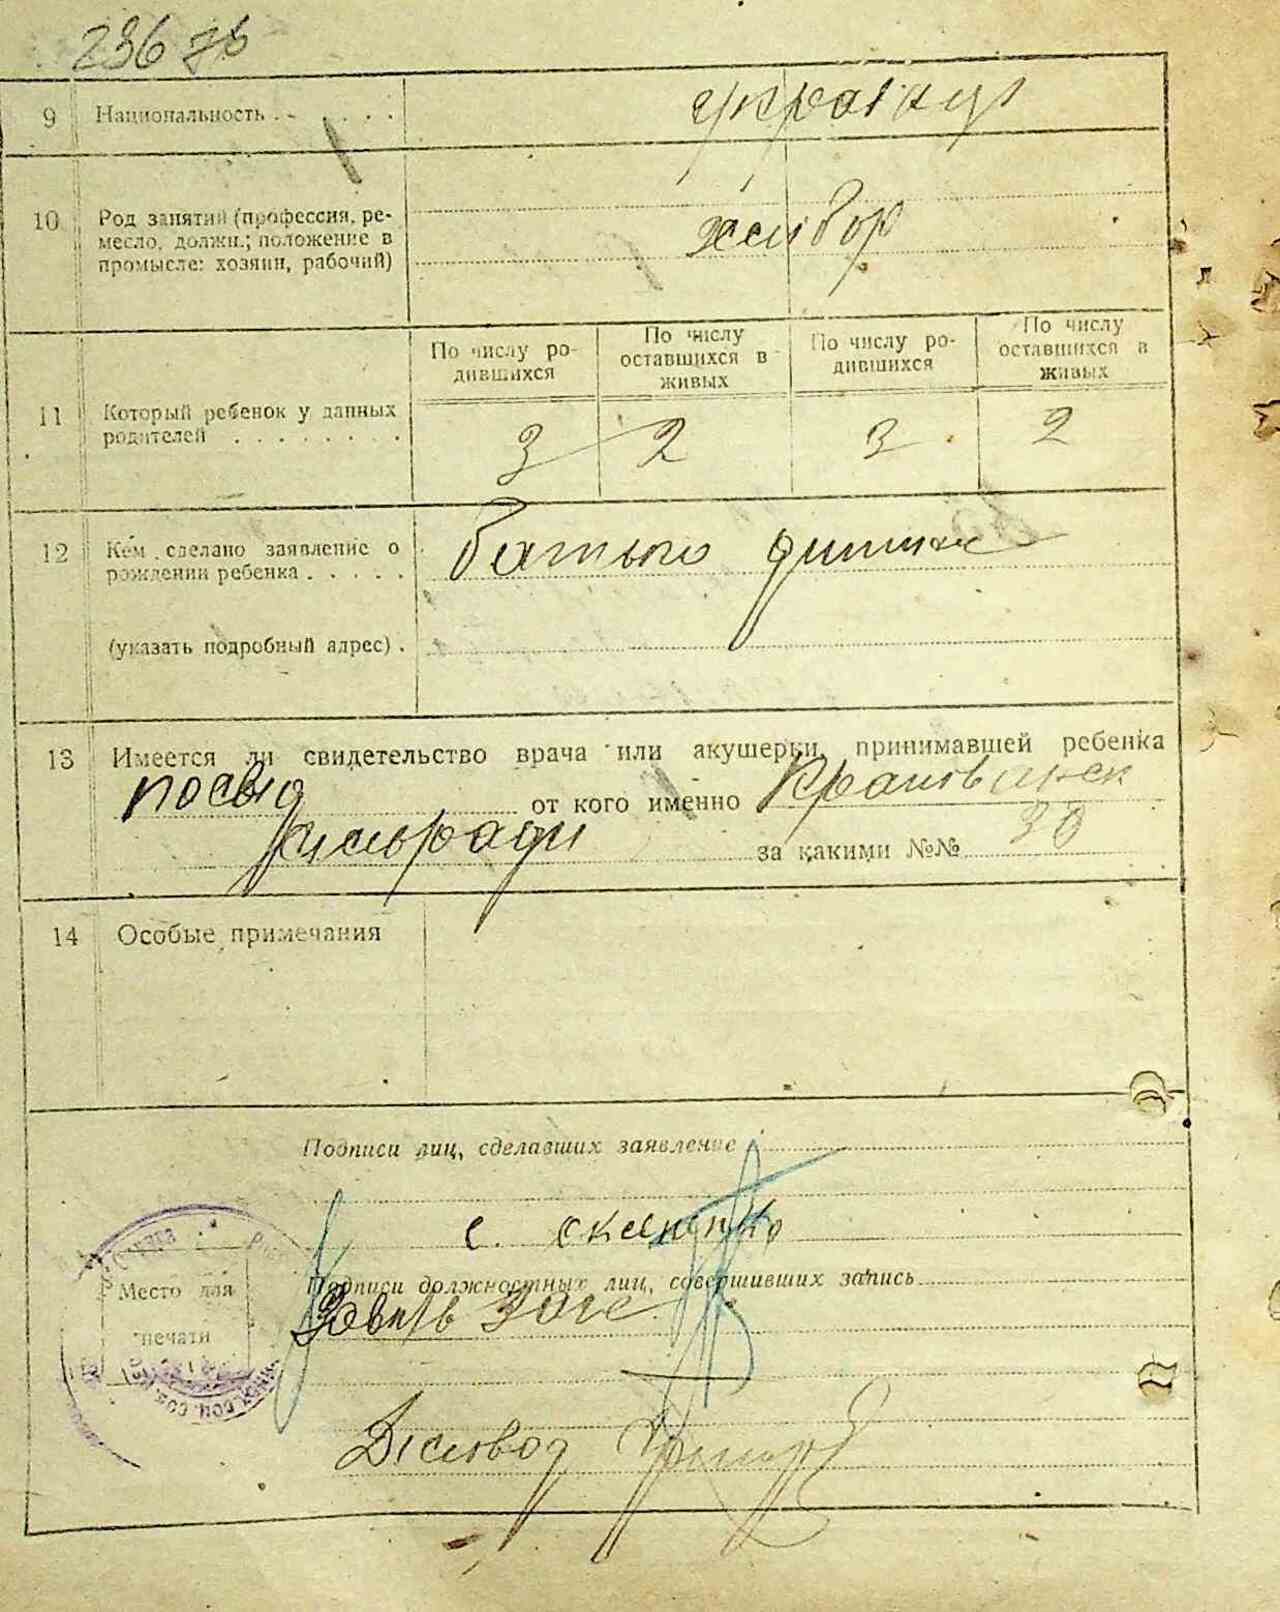 236 зв
9 Национальность . . . . . . українці
10 Род занятий (профессия, ре-
месло, должн.; положение в
промысле: хозяин, рабочий)
хлібор
По числу ро-
дившихся
По числу
оставшихся в
живых
По числу ро-
дившихся
По числу
оставшихся в
живых
11 Который ребенок у данных
родителей . . . . . . . .
3 2 3 2
12 Кем сделано заявление о
рождении ребенка . . . . .
батько дитини
(указать подробный адрес) .
13 Имеется ли свидетельство врача или акушерки, принимавшей ребенка
посвід от кого именно
сільради за какими №№ 30
14 Особые примечания
Подписи лиц, сделавших заявление
с.
Подписи должностных лиц, совершивших запись
Место для
печати
Завіть Загс
Діловод